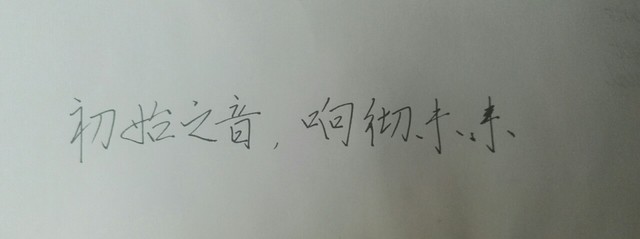 初始之音,响彻未来